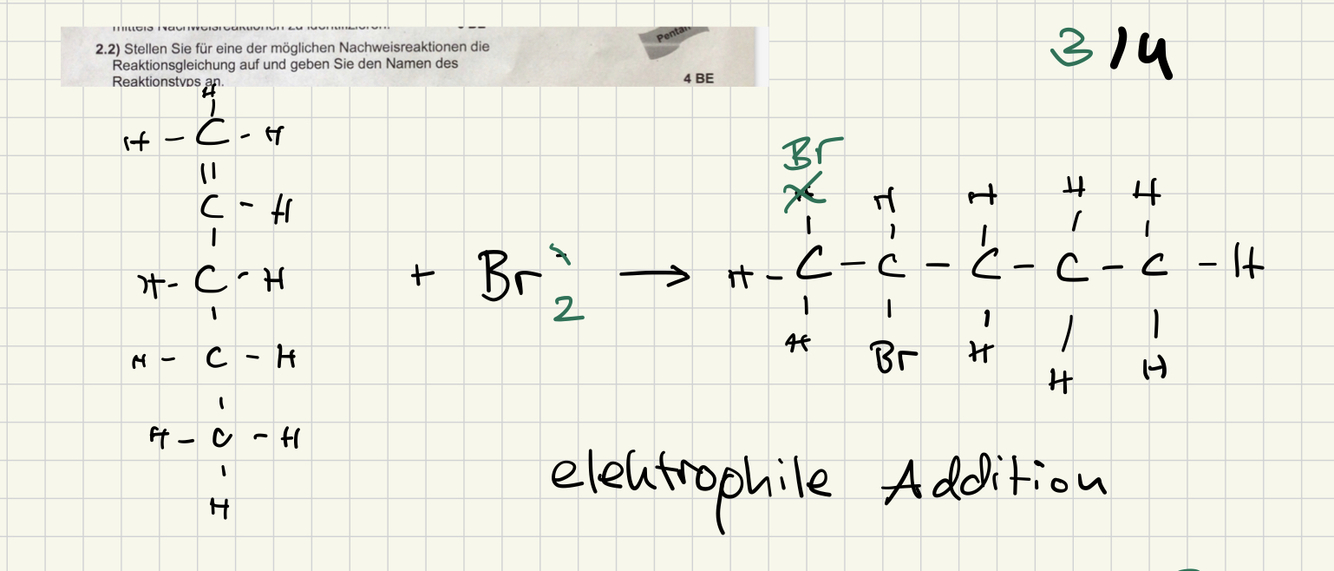 mittels Nachweisreaktionen zu identifizieren.
2.2) Stellen Sie für eine der möglichen Nachweisreaktionen die
Reaktionsgleichung auf und geben Sie den Namen des
Reaktionstyps an.
4 BE
Pentan
3/4
H
H - C - H
||
C - H
|
H - C - H
|
H - C - H
|
H - C - H
|
H
+ Br 2 →
Br
H H H H
| | | | |
H - C - C - C - C - C - H
| | | | |
H Br H H H
elektrophile Addition